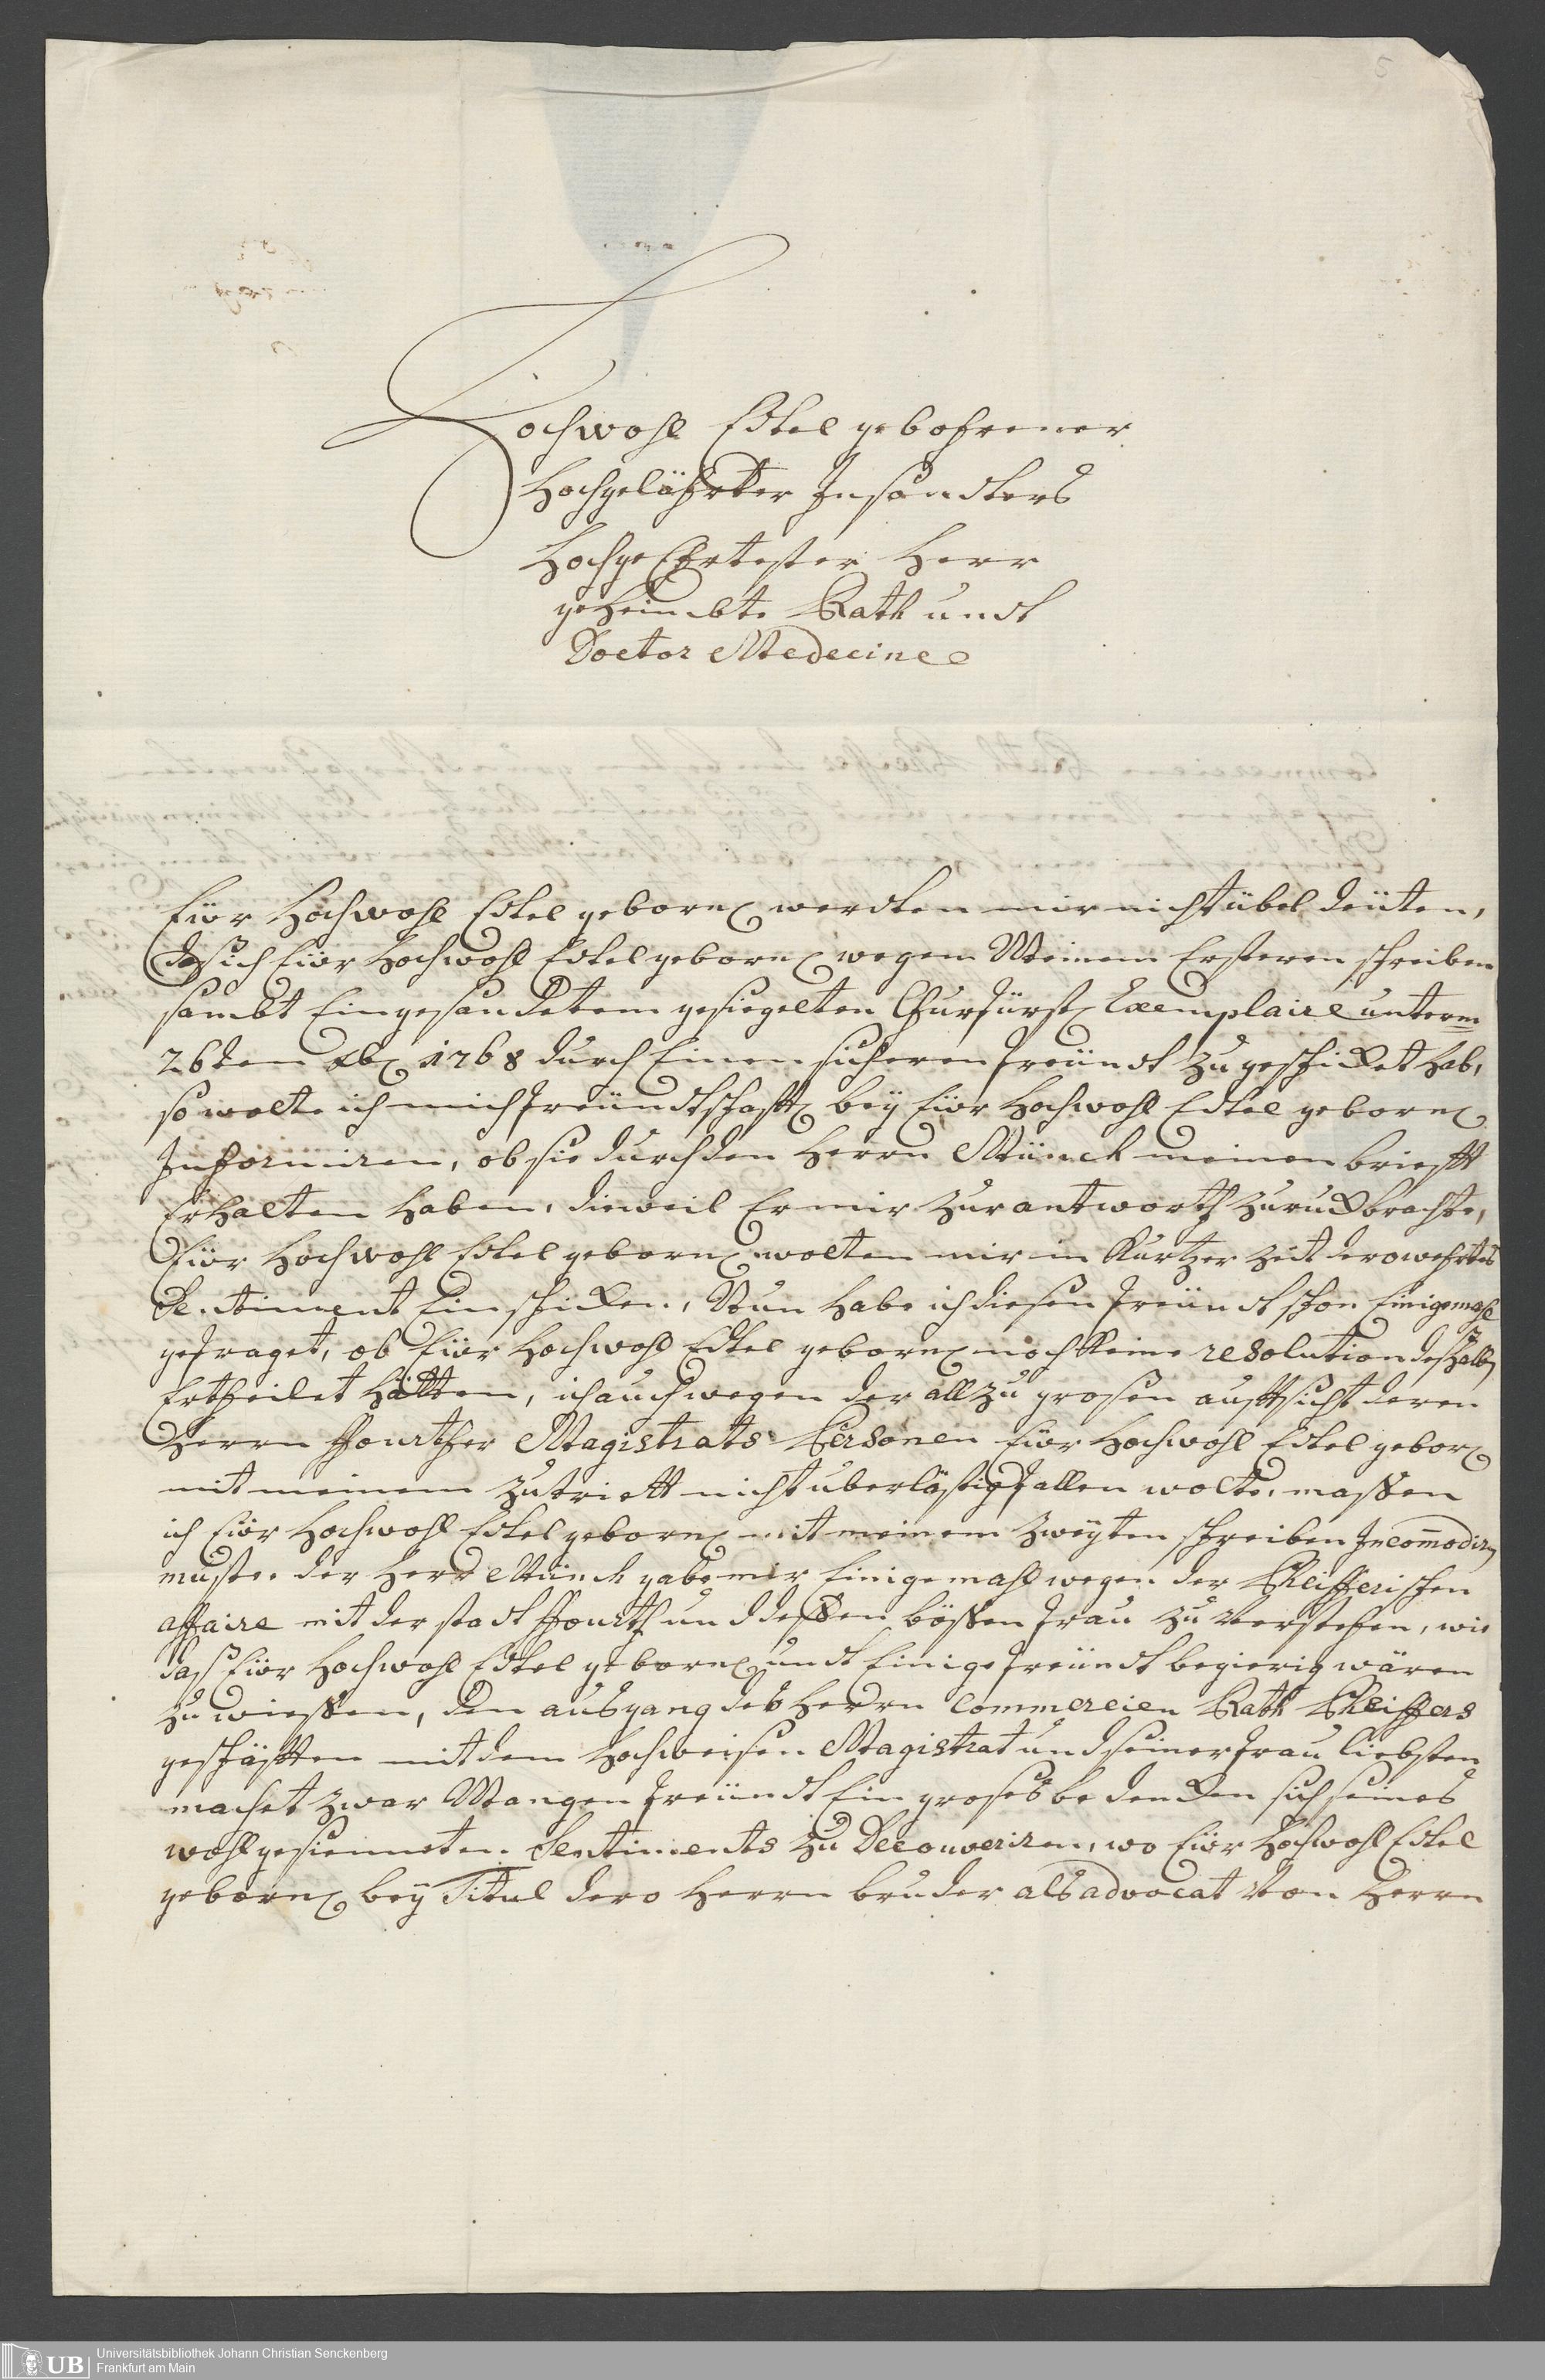 5
Hochwohl Edtel gebohrener
Hochgelährter Insondters
HochgeEhrtester Herr
geheimbte Rath undt
Doctor Medecine
Eüer Hochwohl Edtel geborn werdten mir nicht übel deüten,
das ich Eüer Hochwohl Edtel geborn wegen Meinem Ersteren schreiben
sambt Eingesandetem gesiegelten Churfürst Exemplaire unterm
26ten 1768 durch Einen sicheren freündt zu geschicket hab,
so wolte ich mich freündtschafft bey Eüer Hochwohl Edtel geborn
Informiren, ob sie durch den Herrn Münch meinen briefft
Erhalten haben, dieweil Er mir zur antworth zuruckbrachte,
Eüer Hochwohl Edtel geborn wolten mir in Kurtzer Zeit dero wehrtes
Sentiment Einschicken, Nun habe ich diesen freündt schon Einigemahl
gefraget, ob Eüer Hochwohl Edtel geborn noch Keine resolution deshalb
Ertheilet hätten, ich auch wegen der allzu grosen auffsicht deren
Herrn ffourther Magistrats Persönen Eüer Hochwohl Edtel gebor
mit meinem zutriett nicht uberlästig fallen wolte, massen
ich Eüer Hochwohl Edtel geborn mit meinem zweyten schreiben Incomodirn
muste. der Herr Münch gabe mir Einige mahl wegen der Pfeifferischen
affaire mit der stadt ffourth und dessen bössen frau zu verstehen, wie
das Eüer Hochwohl Edtel geborn undt Einige freündt begierig wären
zu wiessen, den ausgang des Herrn Commercien Rath Pfeiffers
geschäfften mit dem Hochweisen Magistrat und seiner frau liebsten
machet zwar Mangen freündt Ein groses bedencken sich seines
wohlgesienneten Sentiments zu Decouveriren, wo Eüer Hochwohl Edtel
geborn bey Titul dero Herrn bruder als advocat von Herrn
UB
Universitätsbibliothek Johann Christian Senckenberg
Frankfurt am Main